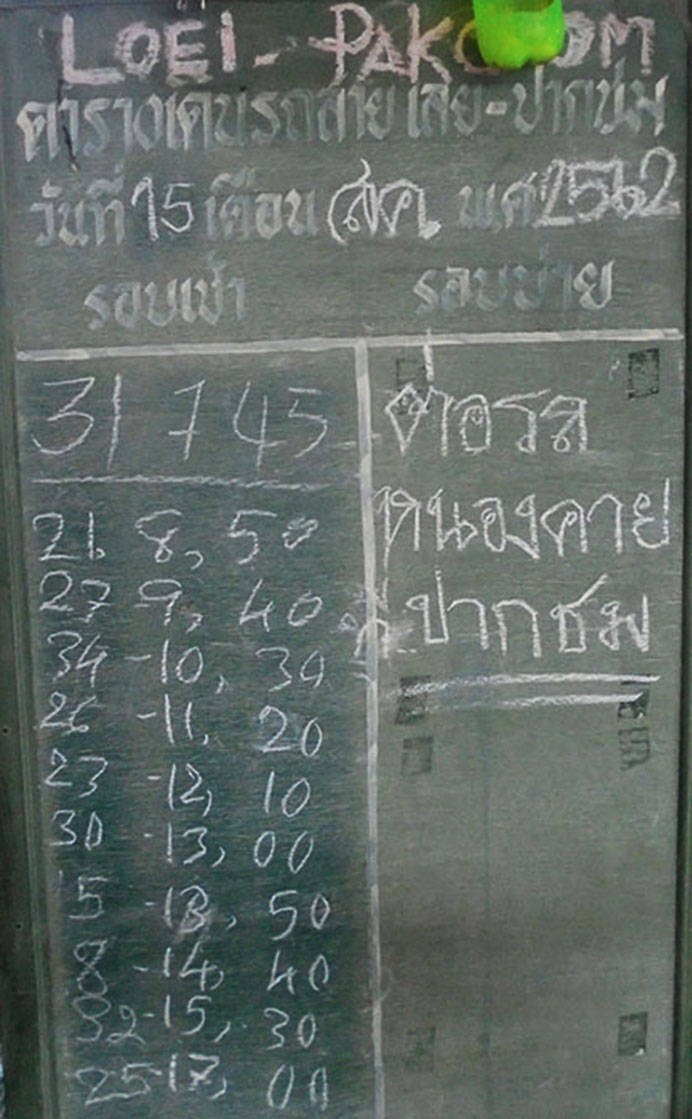 LOEI - PAK OM
ตารางเดินรถสาย เลย-ปากชม
วันที่ 15 เดือน สค. พ.ศ 2562
รอบเช้า
รอบบ่าย
31 7 45
21 8, 50
27 9, 40
34 -10, 30
26 -11, 20
23 -12, 10
30 -13, 00
5 -13, 50
8 -14, 40
32 -15, 30
25 -17, 00
ต่อรถ
หนองคาย
ปากชม